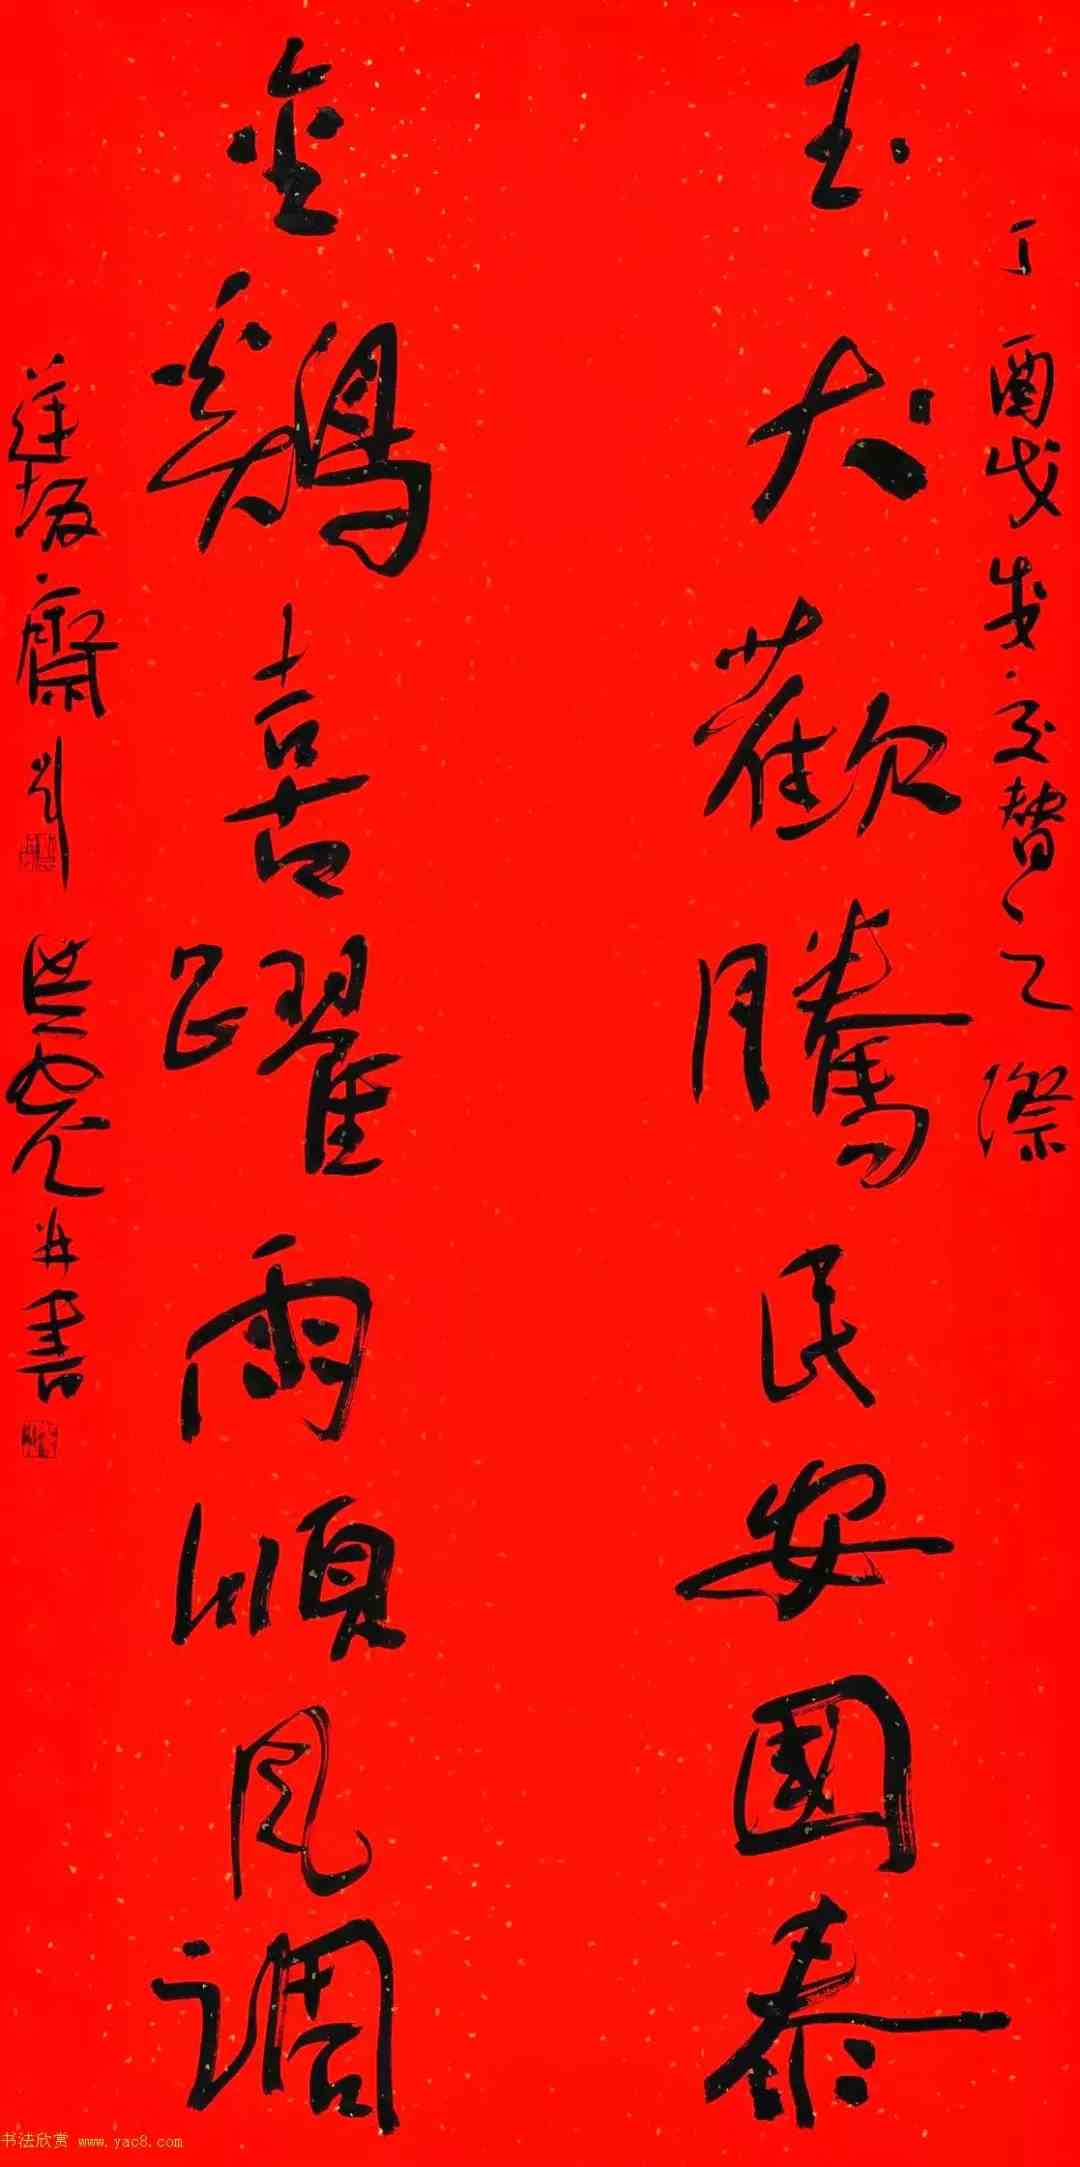 丁酉戊戌交替之際
玉犬歡騰民安國泰
金鷄喜躍雨順風調
齋劉
并書
书法欣赏 www.yac8.com